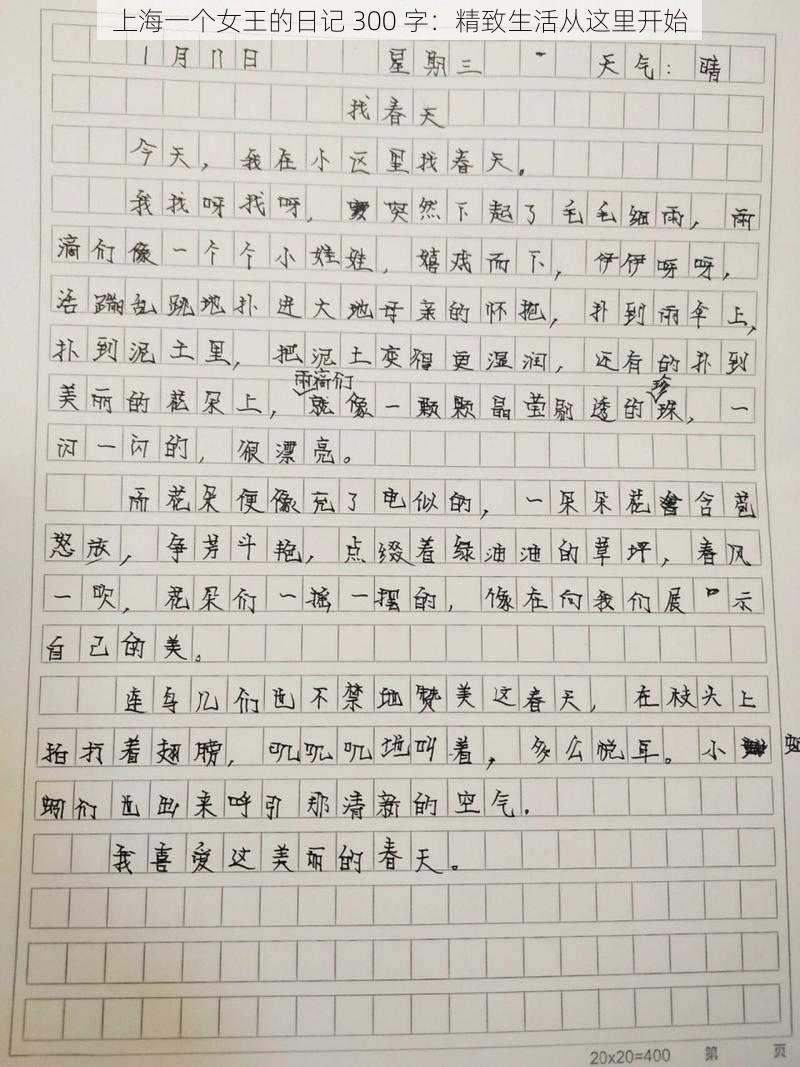 上海一个女王的日记 300 字：精致生活从这里开始
1月11日 星期三 天气：晴
找春天
今天，我在小区里找春天。
我找呀找呀，突然下起了毛毛细雨，雨
滴们像一个个小娃娃，嬉戏而下，伊伊呀呀，
活蹦乱跳地扑进大地母亲的怀抱，扑到雨伞上，
扑到泥土里，把泥土变得更湿润，还有的扑到
雨滴们 珍
美丽的花朵上，就像一颗颗晶莹剔透的珠，一
闪一闪的，很漂亮。
而花朵便像充了电似的，一朵朵花含苞
怒放，争芳斗艳，点缀着绿油油的草坪，春风
一吹，花朵们一摇一摆的，像在向我们展示
自己的美。
连鸟儿们也不禁地赞美这春天，在枝头上
拍打着翅膀，叽叽叽地叫着，多么悦耳。小
们也出来呼引那清新的空气.
我喜爱这美丽的春天。
20x20=400 第 页